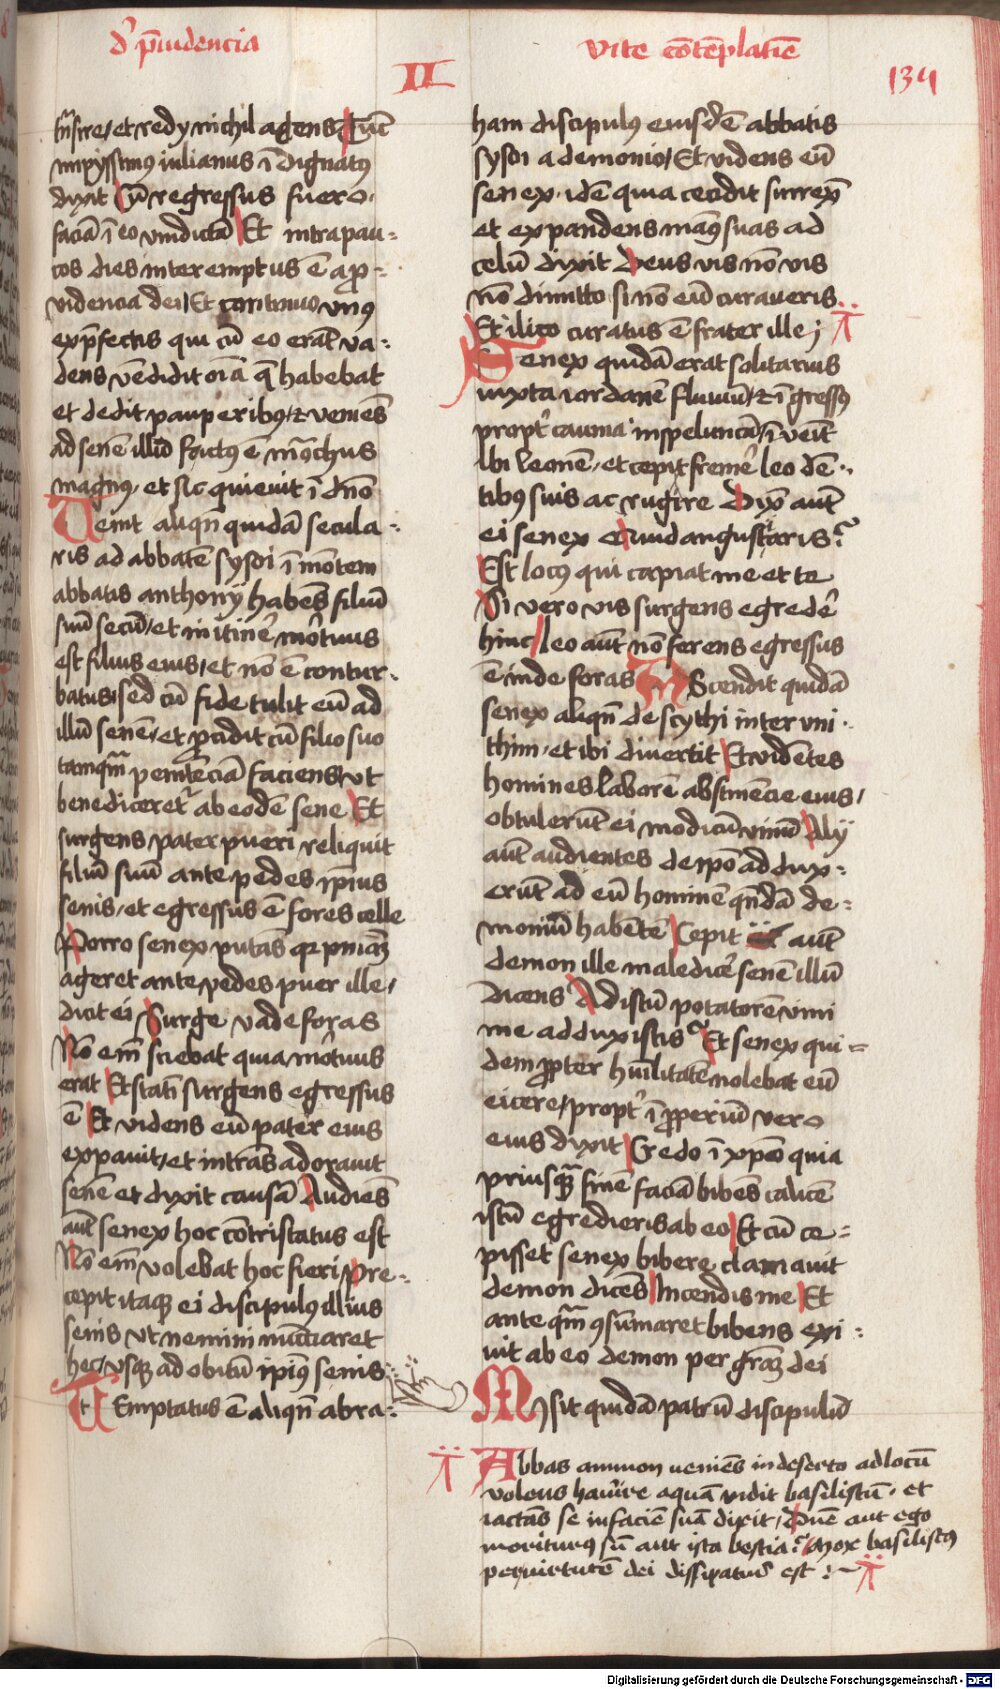 d' p̄uidencia
II
vite cōtēplatīe
134
tn̄sire, et redy nichil agens Tūc
impyssimꝰ iulianus īdignatꝰ
dixit Cū regressus fuero
faciā ī eo vindictā Et intra pau-
cos dies interemptus ē a pro-
videncia dei, Et continuo vnꝰ
ex p̄fectis qui cū eo erāt va-
dens vēdidit oīa q̄ habebat
et dedit pauperibꝰ, ⁊ veniēs
ad senē illū factꝰ ē mōchus
magnꝰ, et sic quieuit ī dn̄o
Venit aliqn̄ quidā secula-
ris ad abbatē sysoi ī mōtem
abbatis anthonij habēs filiū
suū secū, et in itīne mōrtuus
est filius eius, et nō ē contur-
batus, sed cū fide tulit eū ad
illū senē, et ꝓcidit cū filio suo
tamqm̄ penitēciā faciens, vt
benediceretᷣ ab eodē sene Et
surgens pater pueri reliquit
filiū suū ante pedes ipius
senis, et egressus ē fores celle
Porro senex putās qꝛ pn̄iaꝫ
ageret ante pedes puer ille,
dicit ei Surge vade foras
Nō em̄ sciebat quia mōrtuus
erat Et statī surgens egressus
ē Et videns eū pater eius
expauit, et intrās adorauit
senē et dixit causā Audiēs
aūt senex hoc cōtristatus est
Nō em̄ volebat hoc fieri Pre-
cepit itaqꝫ ei discipulꝰ illius
senis vt nemini nūciaret
hec, vsqꝫ ad obitū ipiꝰ senis
Temptatus ē aliqn̄ abra-
ham discipulꝰ eiusdē abbatis
sysoi a demonio, Et videns eū
senex idē quia cecidit surrex̄
et expandens manꝰ suas ad
celū dixit Deus vis nō vis
nō dimitto si nō eū curaueris
Et ilico curatus ē frater ille
Senex quidā erat solitarius
iuxta iordanē fluuiū, ⁊ īgressꝰ
propt' cauma in speluncā, īvēit
ibi leonē, et cepit fremē leo dē-
tibꝰ suis ac rugire Dix̄ aūt
ei senex Quid angustiaris?
Est locꝰ qui capiat me et te
Si vero vis surgens egredē
hinc leo aūt nō ferens egressus
ē inde foras Ascendit quidā
senex aliqn̄ de scythi inter vni-
thim, et ibi diuertit Et vidētes
homines laborē abstinēcie eius,
obtulerūt ei modicū vinū Alij
aūt audientes de ipo ad dux-
erūt ad eū hominē qn̄dā de-
moniū habētē Cepit aūt
demon ille maledicē senē illū
dicens Ad istū potatorē vini
me adduxistis? Et senex qui-
dem ꝓpter huīlitatē nolebat eū
eicere, propt' īꝓperiū vero
eius dixit Credo ī xp̄o quia
priusqꝫ finē faciā bibēs calicē
istū egredieris ab eo Et cū ce-
pisset senex bibere clamauit
demon dicēs Incendis me Et
ante qm̄ ꝯsūmaret bibens exi-
uit ab eo demon per grāꝫ dei
Misit quidā patrū discipulū
Abbas ammon ueniēs in deserto ad locū
volens haurire aquā vidit basiliscū, et
iactās se in faciē suā dixit, Dn̄e aut ego
moriturꝰ sū aut ista bestia? mox basiliscꝰ
per virtutē dei dissipatus est
Digitalisierung gefördert durch die Deutsche Forschungsgemeinschaft - DFG